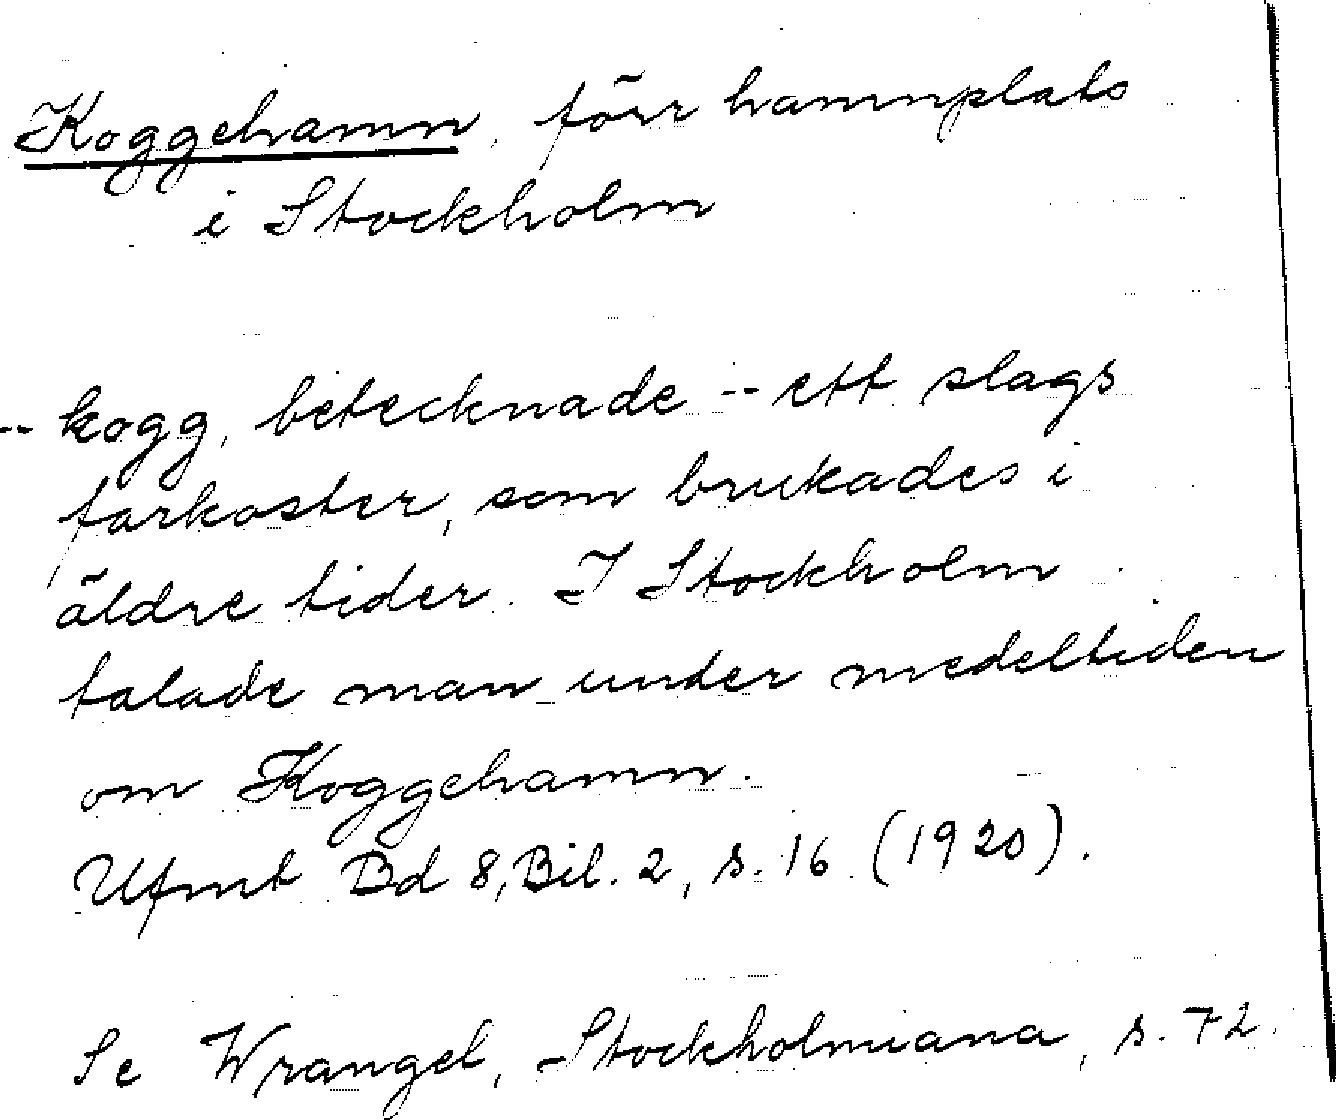 Koggehamn, förr hamnplats
i Stockholm
-- kogg, betecknade -- ett slags
farkoster, som brukades i
äldre tider. I Stockholm
talade man under medeltiden
om Koggehamn.
Ufmt Bd 8, Bil. 2, s. 16 (1920).
Se Wrangel, Stockholmiana, s. 72.